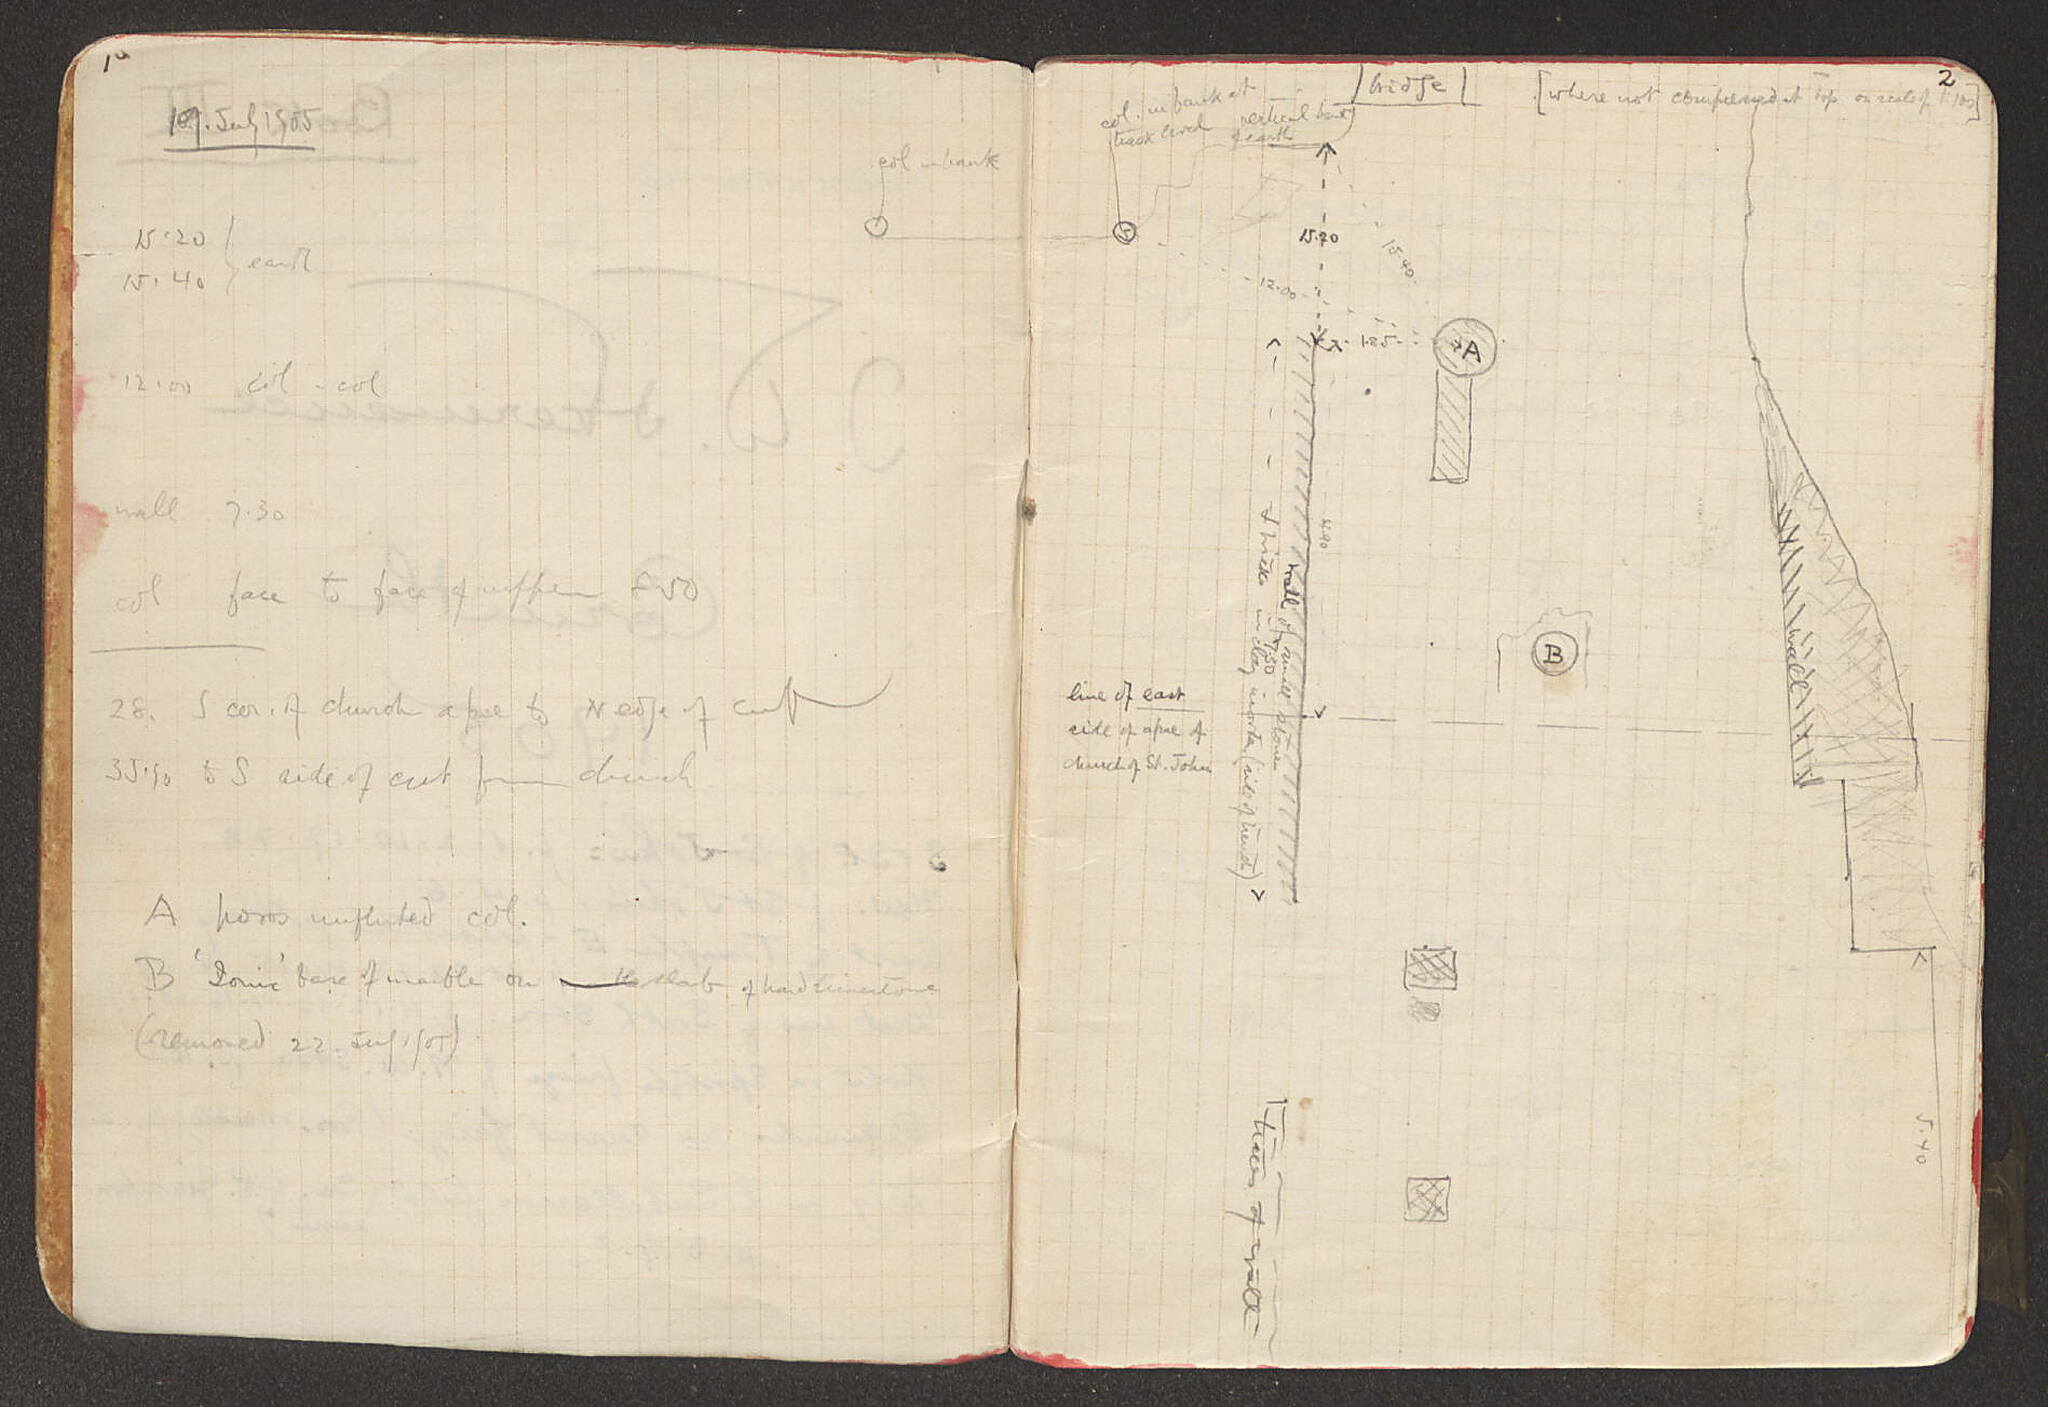 July 1905
15.20
15.40
12.00 col - col
wall 7.30
col face to face of upper
28. S cor. of church apse to N edge of cut
35.90 to S side of cut from church
A poros unfluted col.
B 'Ionic' base of marble on slab of hard limestone
(removed 22. July 1905)
col in bank
2
col. in bank at
track level
vertical bank
of earth
bridge
[where not compressed at top on scale of 1:100]
15.20
15.40
12.00
1.85
A
4.90
wall of small stones
7.30
B
line of east
side of apse of
church of St. John
wall
traces of wall
5.40